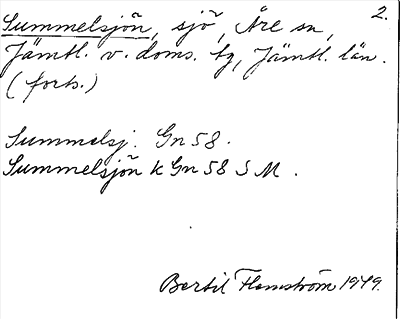 2.
Summelsjön, sjö, Åre sn,
Jämtl. v. doms. tg, Jämtl. län.
(forts.)
Summelsj. Gn 58.
Summelsjön k Gn 58 S M.
Bertil Flemström 1949.